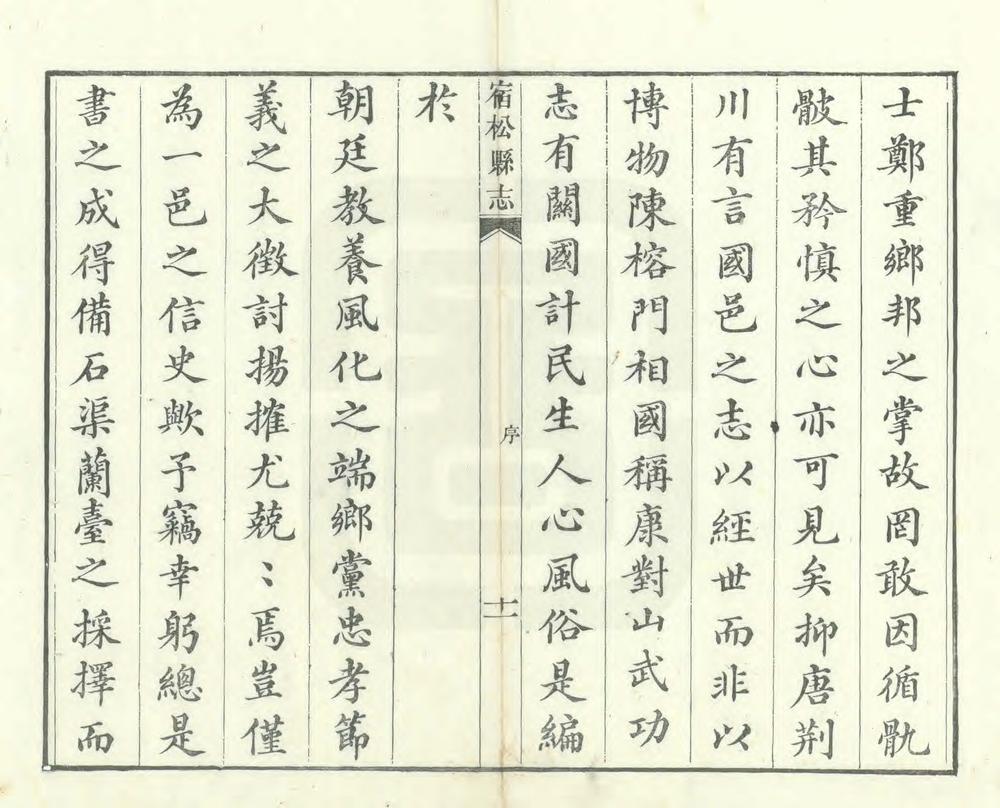 士鄭重鄉邦之掌故罔敢因循骩
骳其矜慎之心亦可見矣抑唐荆
川有言國邑之志以經世而非以
博物陳榕門相國稱康對山武功
志有關國計民生人心風俗是編
於
宿松縣志
序
十一
朝廷教養風化之端鄉黨忠孝節
義之大徵討揚搉尤兢〻焉豈僅
為一邑之信史歟予竊幸躬總是
書之成得備石渠蘭臺之採擇而